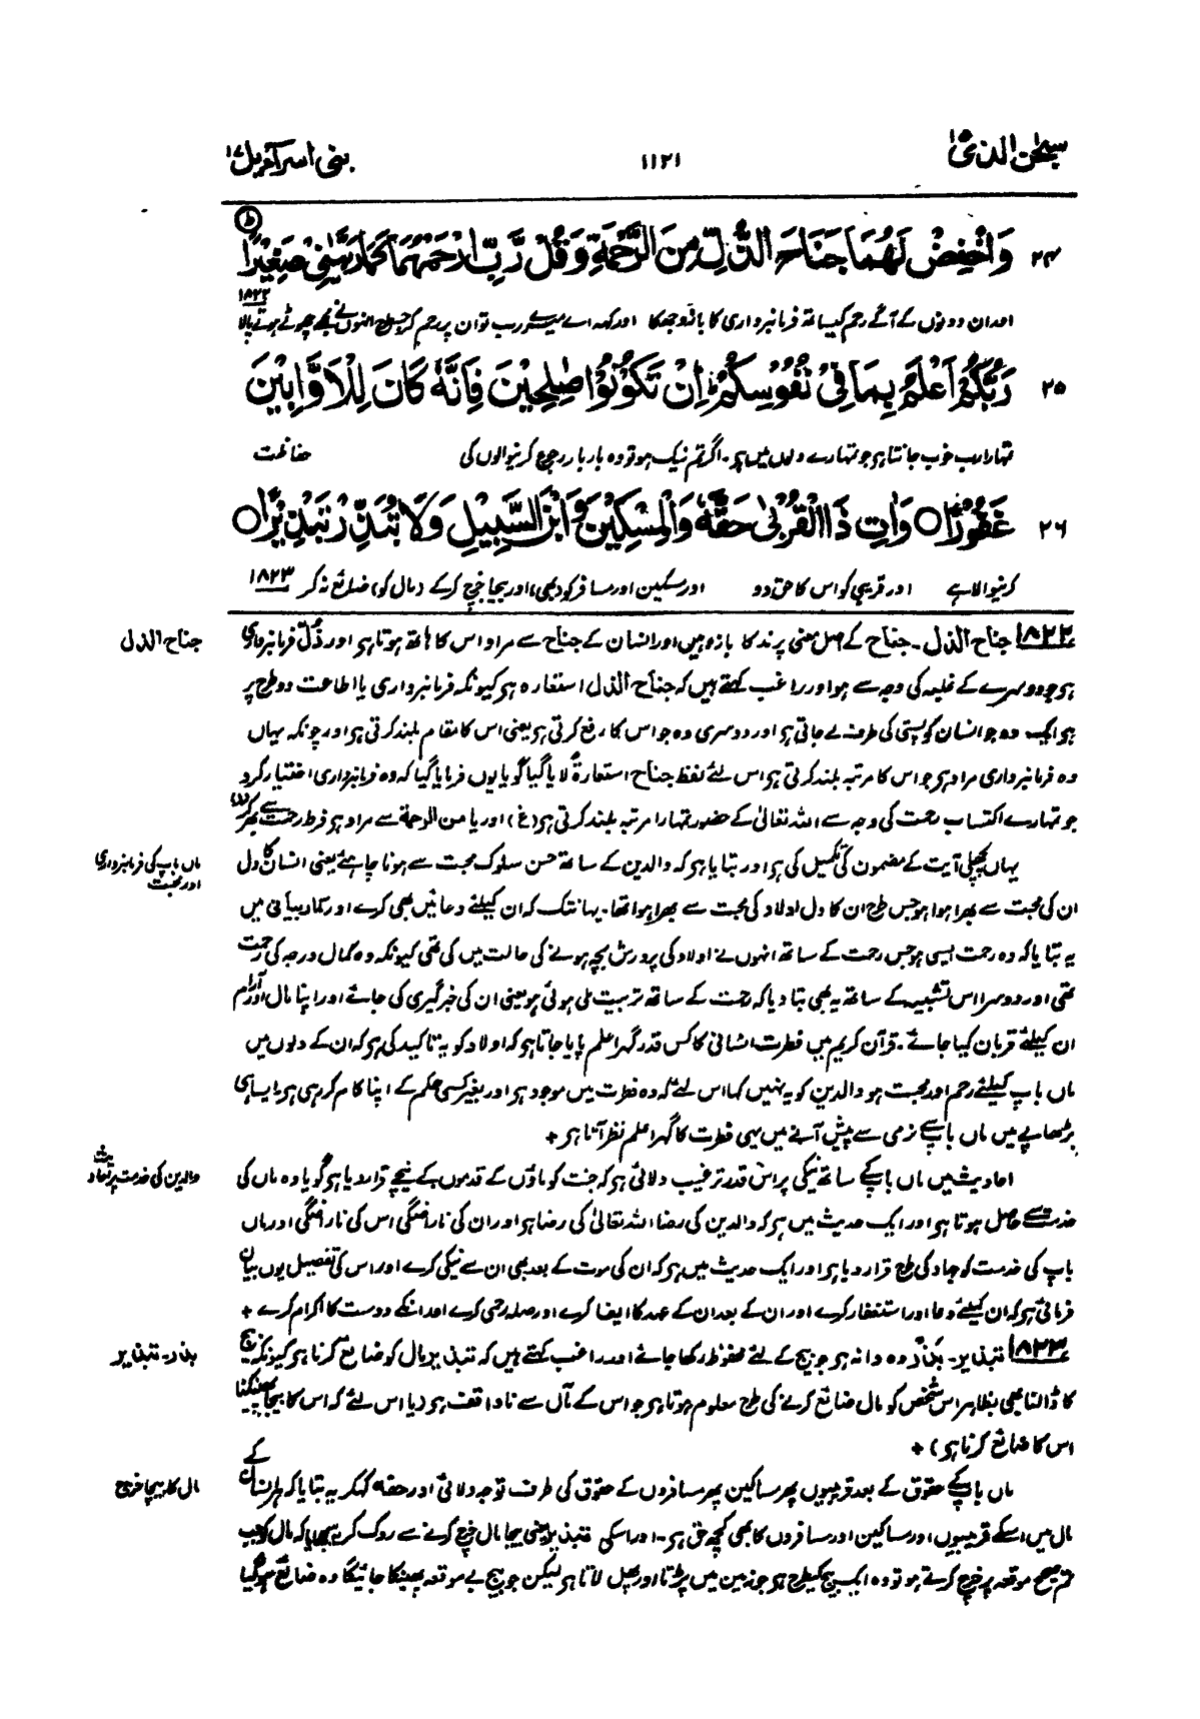 سبحٰن الذی ۱۵
۱۱۲۱
بنی اسرآءیل ۱۷
۲۴ وَاخْفِضْ لَهُمَا جَنَاحَ الذُّلِّ مِنَ الرَّحْمَةِ وَقُلْ رَّبِّ ارْحَمْهُمَا كَمَا رَبَّیٰنِیْ صَغِیْرًا ط
اور ان دونوں کے آگے رحم کیساتھ فرمانبرداری کا بازو جھکا اور کہہ اے میرے رب تو ان پر رحم کر جس طرح انہوں نے مجھے چھوٹے ہوتے پالا ۱۸۲۲
۲۵ رَبُّكُمْ اَعْلَمُ بِمَا فِیْ نُفُوْسِكُمْ اِنْ تَكُوْنُوْا صٰلِحِیْنَ فَاِنَّهٗ كَانَ لِلْاَوَّابِیْنَ
تمہارا رب خوب جانتا ہے جو تمہارے دلوں میں ہے۔ اگر تم نیک ہو تو وہ بار بار رجوع کرنیوالوں کی حفاظت
۲۶ غَفُوْرًا ○ وَاٰتِ ذَا الْقُرْبٰی حَقَّهٗ وَالْمِسْكِیْنَ وَابْنَ السَّبِیْلِ وَلَا تُبَذِّرْ تَبْذِیْرًا ○
کرنیوالا ہے اور قریبی کو اس کا حق دو اور مسکین اور مسافر کو (بھی)، اور بیجا خرچ کرکے (مال کو) ضائع نہ کر ۱۸۲۳
۱۸۲۲ جناح الذل۔ جناح کے اصل معنی پرند کا بازو ہیں اور انسان کے جناح سے مراد اس کا ہاتھ ہوتا ہے اور ذُلّ فرمانبرداری
جناح الذل
ہے جو دوسرے کے غلبہ کی وجہ سے ہو اور راغب کہتے ہیں کہ جناح الذل استعارہ ہے کیونکہ فرمانبرداری یا اطاعت دو طرح پر
ہے ایک وہ جو انسان کو پستی کی طرف لے جاتی ہے اور دوسری وہ جو اس کا رفع کرتی ہے یعنی اس کا مقام بلند کرتی ہے اور چونکہ یہاں
وہ فرمانبرداری مراد ہے جو اس کا مرتبہ بلند کرتی ہے اس لئے لفظ جناح استعارۃً لایا گیا گویا یوں فرمایا گیا کہ وہ فرمانبرداری اختیار کرو
جو تمہارے اکتساب رحمت کی وجہ سے اللہ تعالیٰ کے حضور تمہارا مرتبہ بلند کرتی ہے (غ) اور یا من الرحمۃ سے مراد ہے فرط رحمت سے
یہاں پچھلی آیت کے مضمون کی تکمیل کی ہے اور بتایا ہے کہ والدین کے ساتھ حسن سلوک محبت سے ہونا چاہئے یعنی انسان کا دل
ماں باپ کی فرمانبرداری اور محبت
ان کی محبت سے بھرا ہوا ہو جس طرح ان کا دل اولاد کی محبت سے بھرا ہوا تھا۔ یہانتک کہ ان کیلئے دعائیں بھی کرے اور کما ربیانی میں
یہ بتایا کہ وہ رحمت ایسی ہو جس رحمت کے ساتھ انہوں نے اولاد کی پرورش بچہ ہونے کی حالت میں کی تھی کیونکہ وہ کمال درجہ کی رحمت
تھی اور دوسرا اس تشبیہ کے ساتھ یہ بھی بتا دیا کہ رحمت کے ساتھ تربیت ملی ہوئی ہو یعنی ان کی خبرگیری کی جائے اور اپنا مال اور آرام
ان کیلئے قربان کیا جائے۔ قرآن کریم میں فطرت انسانی کا کس قدر گہرا علم پایا جاتا ہے کہ اولاد کو یہ تاکید کی ہے کہ ان کے دلوں میں
ماں باپ کیلئے رحم اور محبت ہو والدین کو یہ نہیں کہا اس لئے کہ وہ فطرت میں موجود ہے اور بغیر کسی حکم کے اپنا کام کر رہی ہے ایسا ہی
بڑھاپے میں ماں باپ سے نرمی سے پیش آنے میں یہی فطرت کا گہرا علم نظر آتا ہے +
احادیث میں ماں باپ کے ساتھ نیکی پر اس قدر ترغیب دلائی ہے کہ جنت کو ماؤں کے قدموں کے نیچے قرار دیا ہے گویا وہ ماں کی
والدین کی خدمت پر احادیث
خدمت سے حاصل ہوتا ہے اور ایک حدیث میں ہے کہ والدین کی رضا اللہ تعالیٰ کی رضا ہے اور ان کی ناراضگی اس کی ناراضگی اور ماں
باپ کی خدمت کو جہاد کی طرح قرار دیا ہے اور ایک حدیث میں ہے کہ ان کی موت کے بعد بھی ان سے نیکی کرے اور اس کی تفصیل یوں بیان
فرمائی ہے کہ ان کیلئے دعا اور استغفار کرے اور ان کے بعد ان کے عہد کا ایفا کرے اور صلہ رحمی کرے اور انکے دوست کا اکرام کرے +
۱۸۲۳ تبذیر۔ بَذْر وہ دانہ ہے جو بیج کے لئے محفوظ رکھا جائے اور راغب کہتے ہیں کہ تبذیر مال کو ضائع کرنا ہے کیونکہ بیج
بذر۔ تبذیر
کا ڈالنا بھی بظاہر اس شخص کو مال ضائع کرنے کی طرح معلوم ہوتا ہے جو اس کے مآل سے ناواقف ہے (یا اس لئے کہ اس کا بیجا پھینکنا
اس کا ضائع کرنا ہے) +
ماں باپ کے حقوق کے بعد قریبیوں پھر مساکین پھر مسافروں کے حقوق کی طرف توجہ دلائی اور حقہ کہکر یہ بتایا کہ ہر انسان کے
مال کا بیجا خرچ
مال میں اسکے قریبیوں اور مساکین اور مسافروں کا بھی کچھ حق ہے۔ اور اسکی تبذیر یعنی بیجا مال خرچ کرنے سے روک کر سمجھایا کہ مال کو جب
تم صحیح موقعہ پر خرچ کرتے ہو تو وہ ایک بیج کیطرح ہے جو زمین میں پڑتا اور پھل لاتا ہے لیکن جو بیج بے موقعہ پھینکا جائیگا وہ ضائع ہو گیا